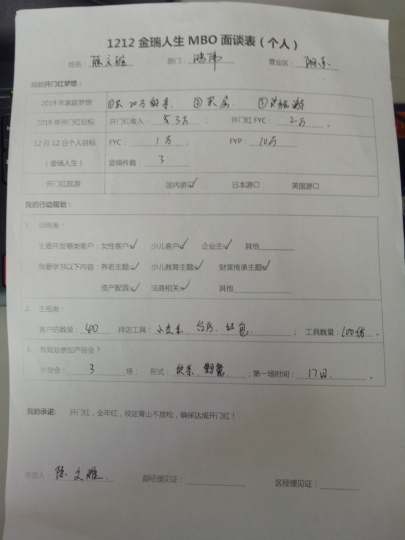 1212金瑞人生MBO面谈表(个人)
姓名:陈文雅 部门: 营业区:
我的开门红梦想:
2019年家庭梦想 ① 20万 ② ③
2019年开门红目标 开门红收入: 5万; 开门红FYC: 2万
12月12日个人目标 FYC: 1万; FYP: 10万
(金瑞人生) 金瑞件数: 3
开门红旅游 国内游☑ 日本游□ 英国游□
我的行动规划:
1. 训练类:
主要开发哪类客户:女性客户✓ 少儿客户✓ 企业主✓ 其他
我要学习以下内容:养老主题✓ 少儿教育主题✓ 财富传承主题✓
资产配置✓ 法商相关✓ 其他
2. 主拓类:
客户的数量: 40 拜访工具: 台历、红包; 工具数量: 100份.
3. 有规划参加产说会?
小交会: 3 场; 形式: ; 第一场时间: 17日.
我的承诺: 开门红,全年红,咬定青山不放松,确保达成开门红!
承诺人: 陈文雅 部经理见证: 区经理见证: